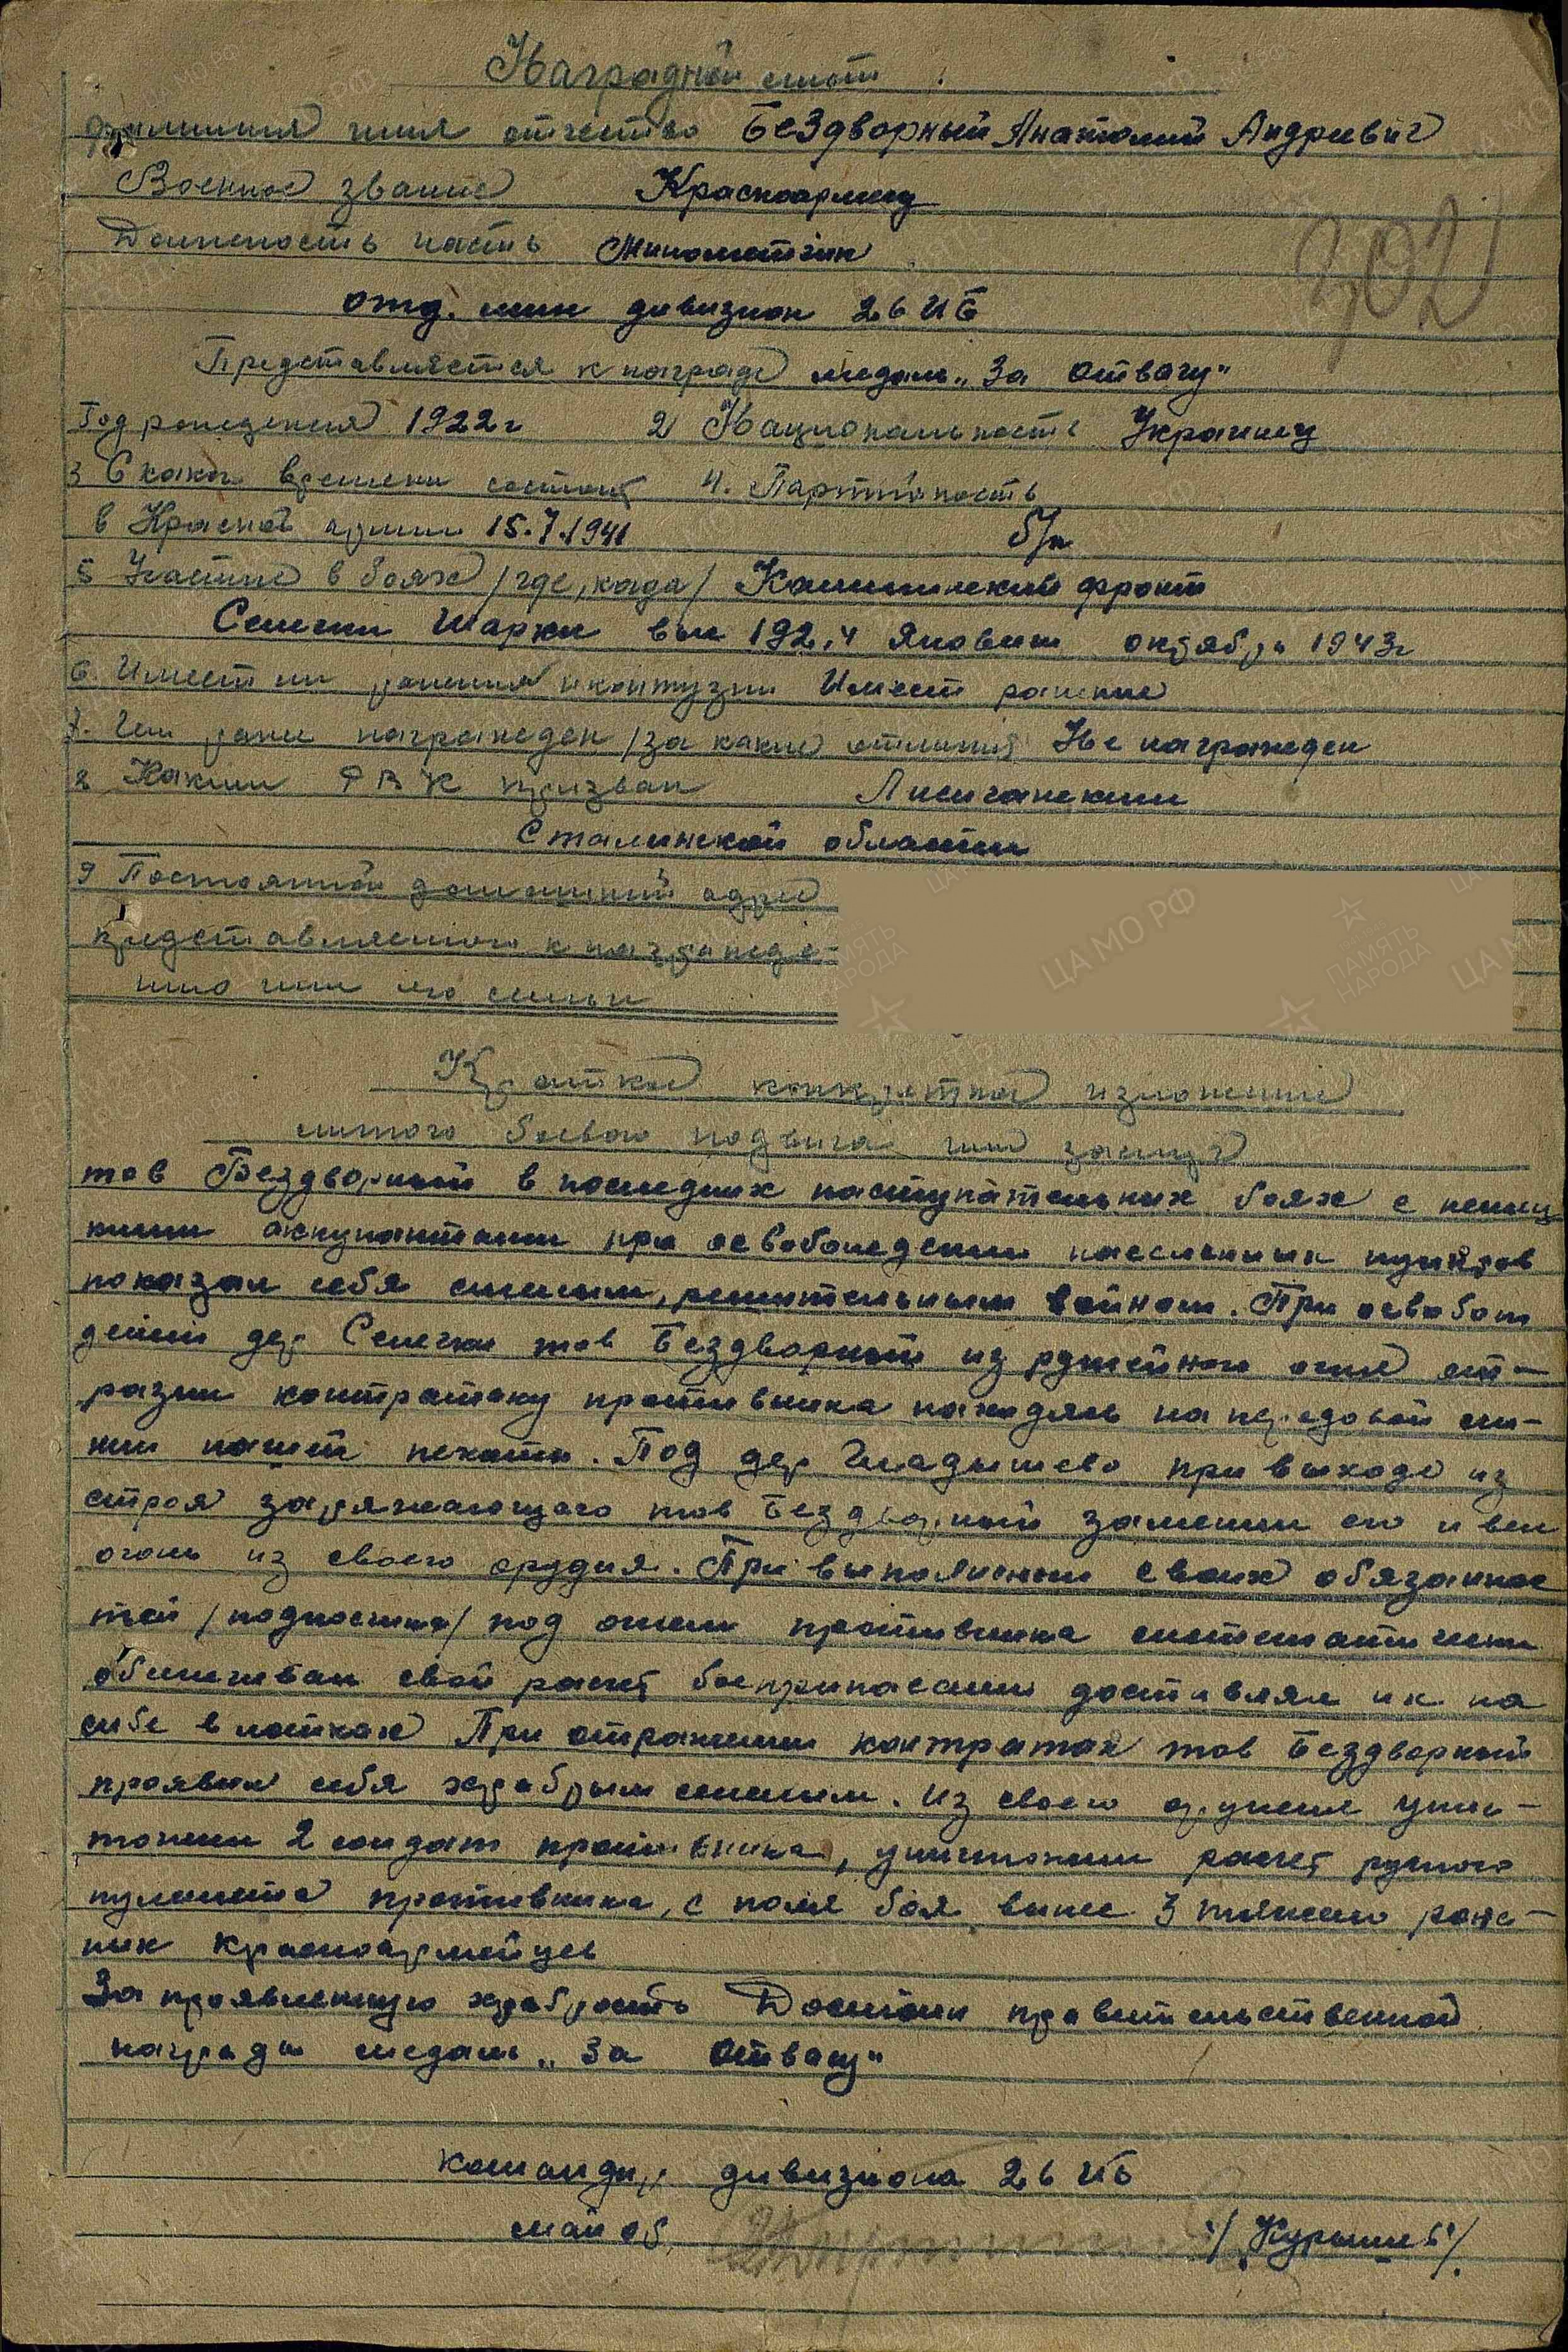 Наградной лист
фамилия имя отчество Бездворный Анатолий Андревич
Военное звание Красноармеец
302
Должность часть Минометчик
отд. мин дивизион 26 ИБ
Представляется к награде медаль „За отвагу"
Год рождения 1922г 2 Национальность Украинец
3 С какого времени состоит 4. Партийность
в Красной армии 15.7.1941 б/п
5 Участие в боях /где, когда/ Калининский фронт
Семечки Шарки выс 192,4 октябрь 1943г
6. Имеет ли ранения и контузии Имеет ранение
7. Чем ранее награжден /за какие отличия Не награжден
8 Каким РВК призван Лисичанским
Сталинской области
9 Постоянной домашний адрес
представляемого к награжде-
нию или его семьи
Краткое конкретное изложение
личного боевого подвига или заслуг
тов Бездворный в последних наступательных боях с немец
кими аккупантами при освобождении населенных пунктов
показал себя смелым, решительным войном. При освобож
дений дер Семечки тов Бездворный из ружейного огня от-
разил контратаку противника находясь на передовой ли-
нии нашей пехоты. Под дер Гладышево при выходе из
строя заряжающего тов Бездворный заменил его и вел
огонь из своего орудия. При выполнении своих обязаннос
тей /подносчика/ под огнем противника систематически
обеспечивал свой расчет боеприпасами доставлял их на
себе в лотках При отражении контратак тов Бездворный
проявил себя храбрым смелым. Из своего оружия унич-
тожил 2 солдат противника, уничтожил расчет ручного
пулемета противника, с поля боя вынес 3 тяжело ране-
ных красноармейцев
За проявленную храбрость Достоин правительственной
награды медаль „За Отвагу"
командир дивизиона 26 ИБ
майор /Курышев/